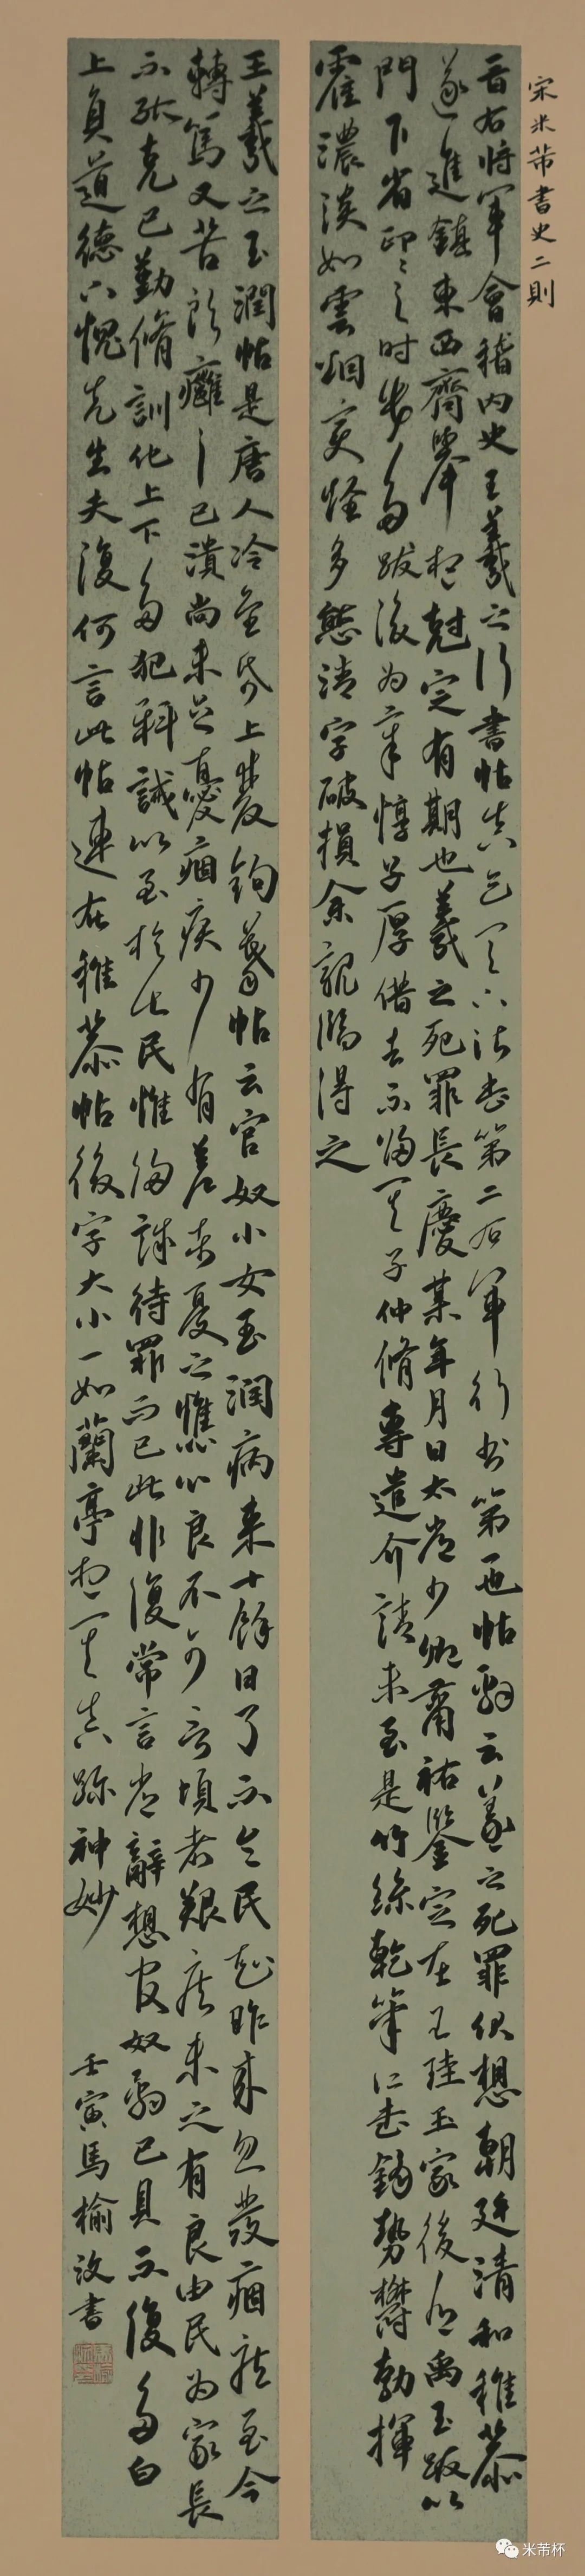 宋米芾書史二則
晉右將軍會稽內史王羲之行書帖真跡天下法書第二右軍行書第一也帖辭云羲之死罪伏想朝廷清和稚恭
遂進鎮東西齊舉想尅定有期也羲之死罪長慶某年月日太常少卿蕭祐鑒定在王珪玉家後有禹玉跋以
門下省印印之時貴多跋後為章惇子厚借去不歸其子仲脩專遣介請未至是竹絲乾筆所書鋒勢鬱勃揮
霍濃淡如雲烟變怪多態清字破損余親臨得之
王羲之玉潤帖是唐人冷金紙上雙鉤摹帖云官奴小女玉潤病來十餘日了不令民知昨來忽發痼疾至今
轉篤又苦頭癰已潰尚未足憂痼疾少有差者憂之憔心良不可言頃者艱疾未之有良由民為家長
不能克己勤脩訓化上下多犯科誡以至於此民惟歸誠待罪而已此非復常言常辭想官奴辭已具不復多白
上負道德下愧先生夫復何言此帖連在稚恭帖後字大小一如蘭亭想其真跡神妙
壬寅馬榆汶書
米芾杯